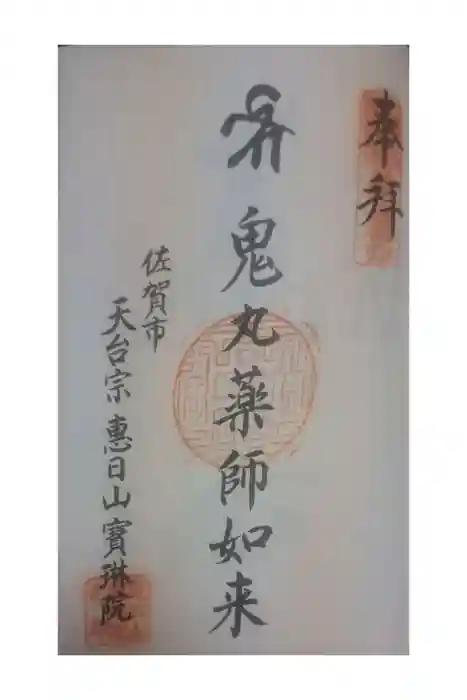 奉拝
鬼丸薬師如来
佐賀市
天台宗 惠日山 寳琳院